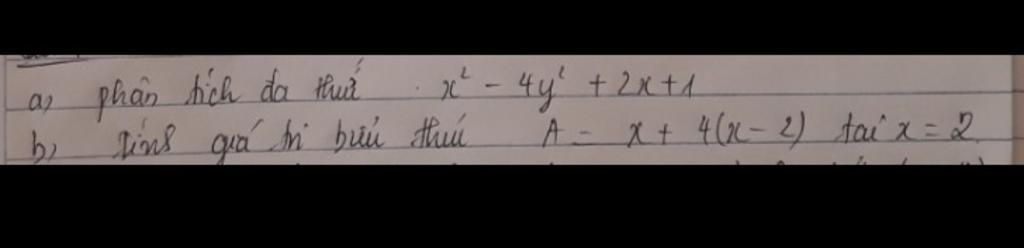 a) phân tích đa thức x² - 4y² + 2x + 1
b) tính giá trị biểu thức A = x + 4(x - 2) tại x = 2